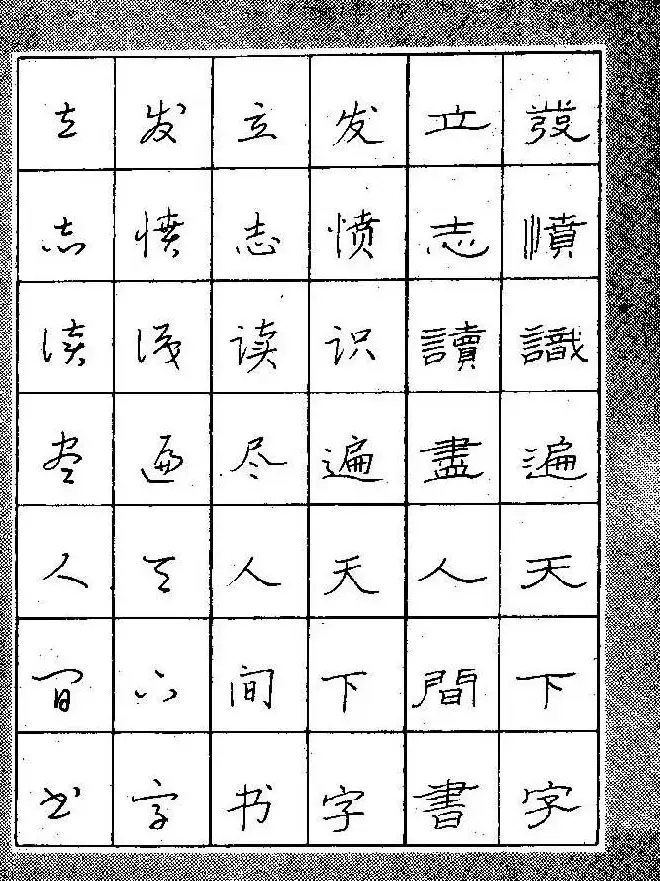 發憤識遍天下字
立志讀盡人間書
发愤识遍天下字
立志读尽人间书
发愤识遍天下字
立志读尽人间书